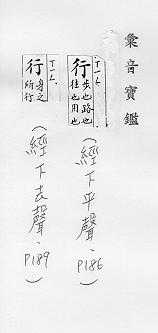 彙音寶鑑
行
步也路也
往也用也
(經下平聲、P186)
行
身之
所行
(經下去聲、P189)